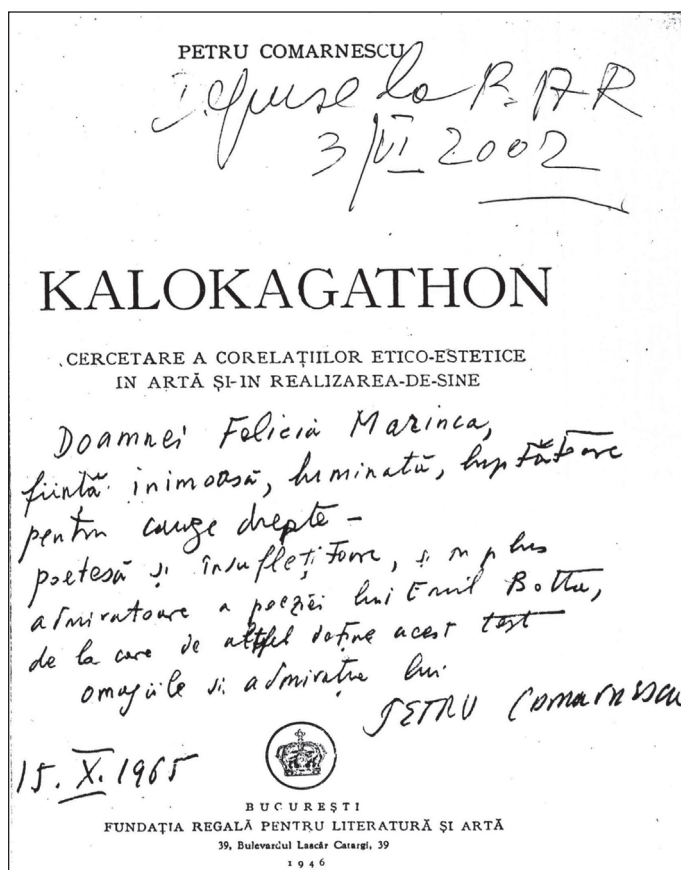 PETRU COMARNESCU
Depuse la B.A.R
3/VI 2002
KALOKAGATHON
CERCETARE A CORELAȚIILOR ETICO-ESTETICE
IN ARTĂ ȘI-IN REALIZAREA-DE-SINE
Doamnei Felicia Marinca,
ființă inimoasă, luminată, luptătoare
pentru cauze drepte –
poetesă și însuflețitoare, și în plus
admiratoare a poeziei lui Emil Botta,
de la care de altfel deține acest text
omagiile și admirația lui
PETRU Comarnescu
15. X. 1965
BUCUREȘTI
FUNDAȚIA REGALĂ PENTRU LITERATURĂ ȘI ARTĂ
39, Bulevardul Lascăr Catargi, 39
1946